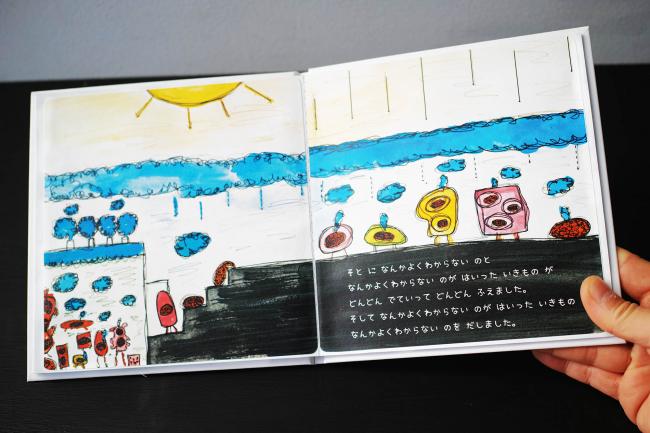 そと に なんかよくわからない のと
なんかよくわからない のが はいった いきもの が
どんどん でていって どんどん ふえました。
そして なんかよくわからない のが はいった いきもの
なんかよくわからない のを だしました。